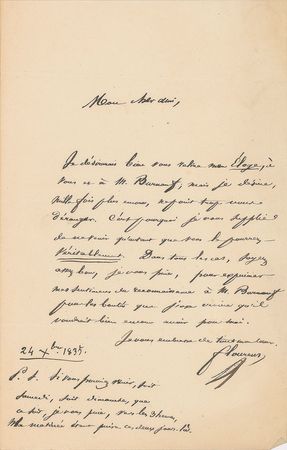 Mon cher ami,
Je désirerais bien vous relire mon Éloge, à
vous et à M. Burnouf, mais je désire,
mille fois plus encore, ne point trop vous
déranger. C'est pourquoi je vous supplie
de ne venir pourtant que si vous le pouvez
véritablement. Dans tous les cas, soyez
assez bon, je vous prie, pour exprimer
mes sentimens de reconnaissance à M. Burnouf
pour les bontés que j'ose croire qu'il
voudrait bien encore avoir pour moi.
Je vous embrasse de tout mon cœur.
flourens
24 Xbre 1835.
P. S. Si vous pouviez venir, soit
samedi, soit dimanche, que
ce soit, je vous prie, vers les 3 heures,
Ma matinée étant prise ces deux jours-là.